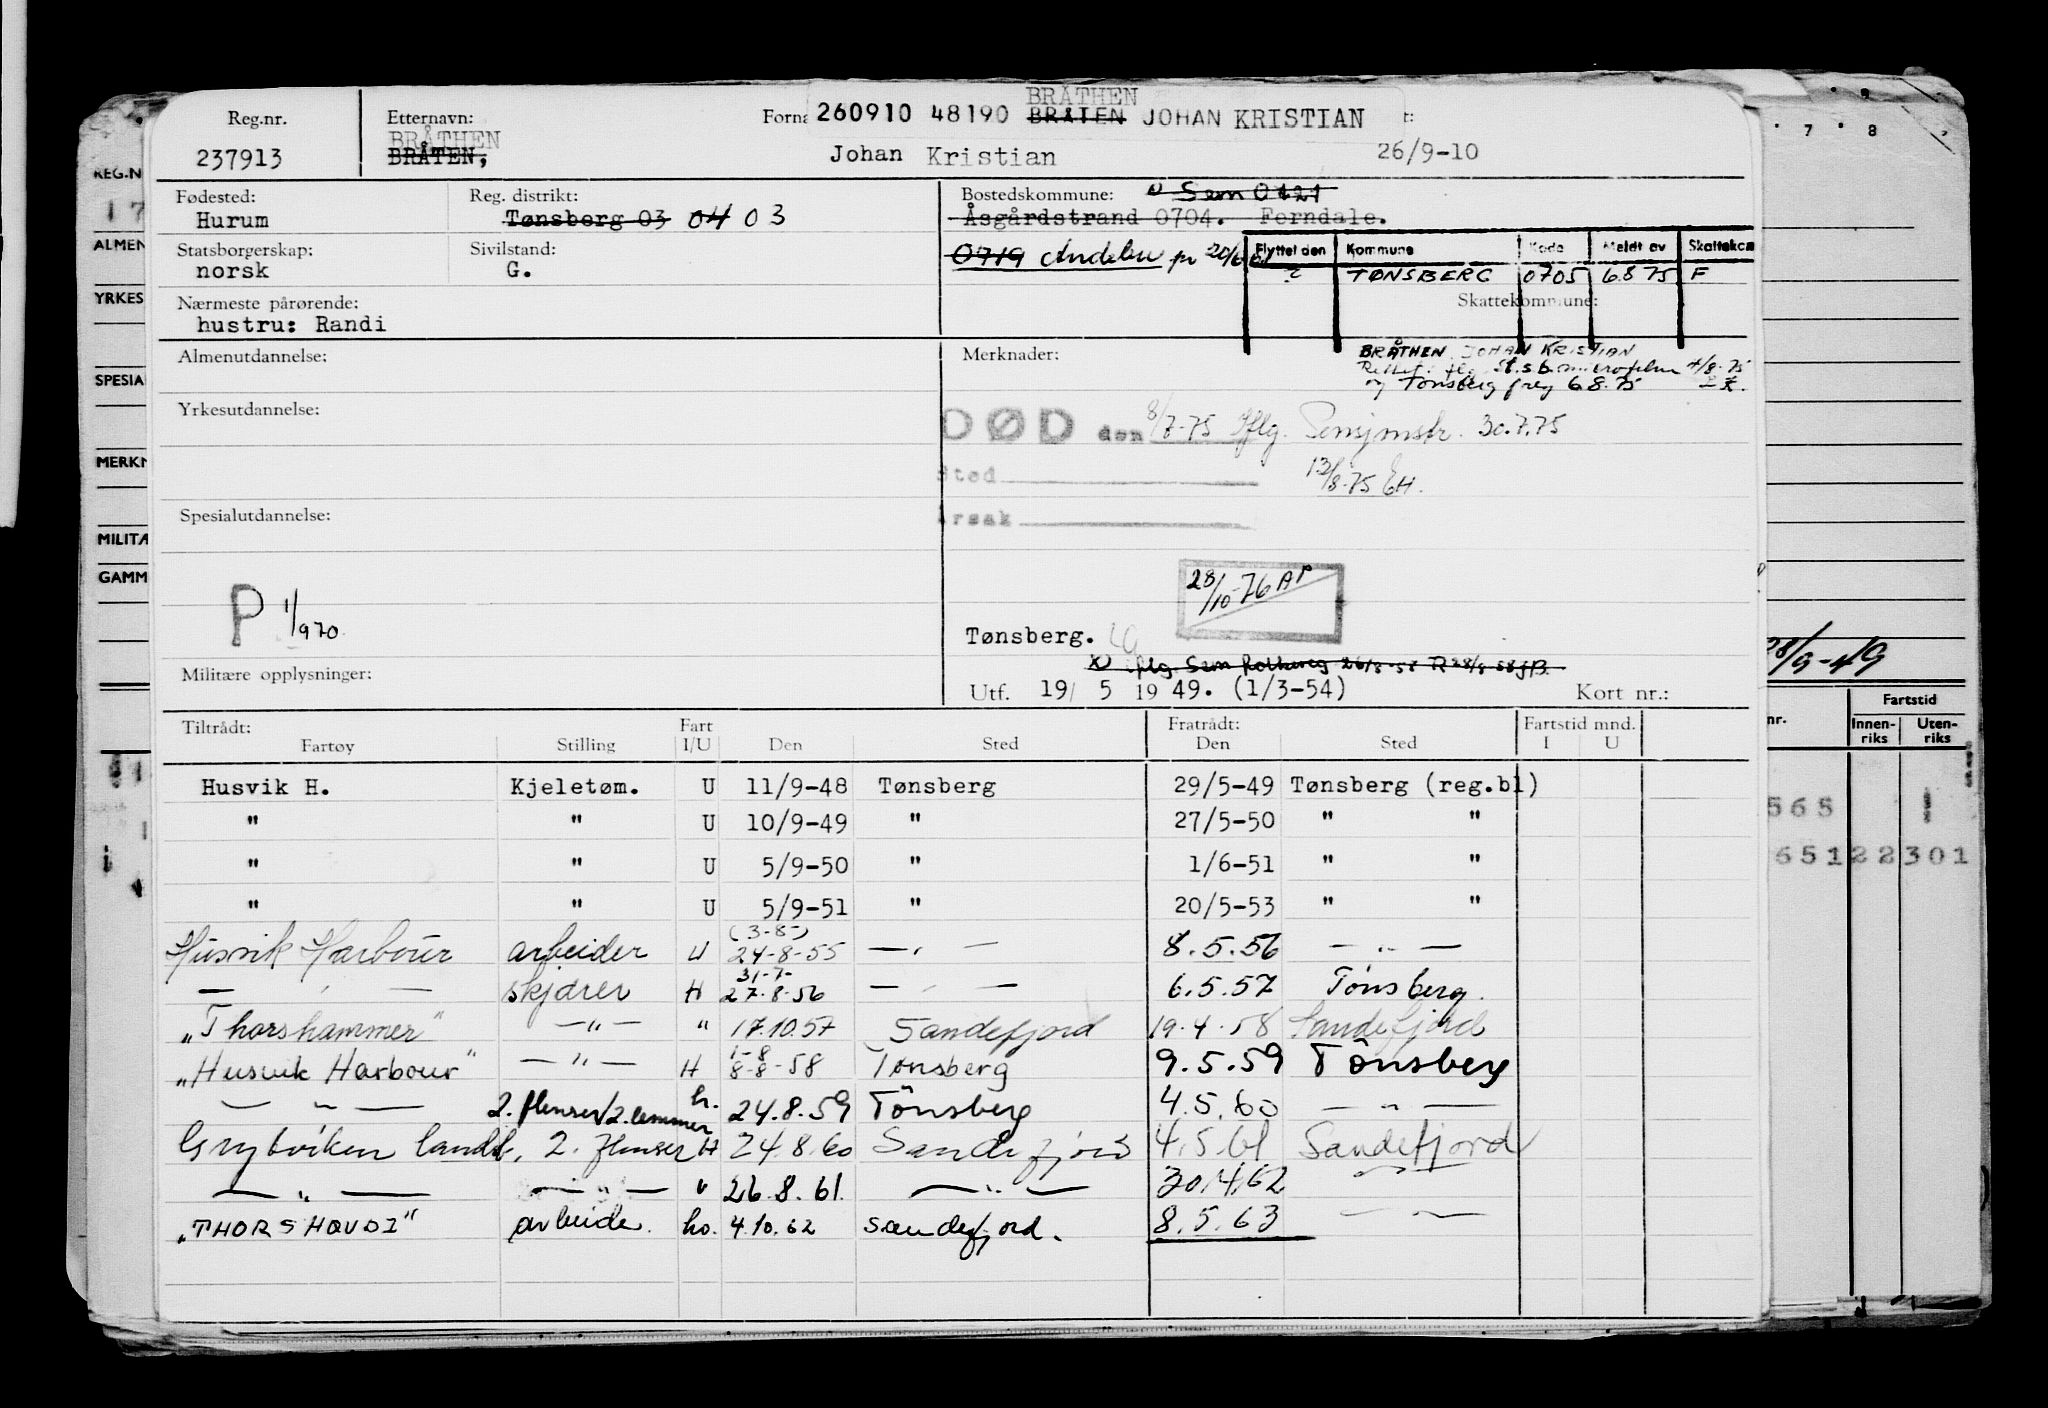 Reg.nr. Etternavn: Forna 260910 48190 BRÅTHEN BRÅTEN JOHAN KRISTIAN t:
237913 BRÅTHEN BRÅTEN, Johan Kristian 26/9-10
Fødested: Reg. distrikt: Bostedskommune: Sem 0721
Hurum Tønsberg 03 04 03 Åsgårdstrand 0704. Ferndale.
Statsborgerskap: Sivilstand: 0719 Andebu fr 20/6
norsk G.
Flyttet den Kommune Kode Meldt av Skattekom
? TØNSBERG 0705 6.8 75 F
Nærmeste pårørende: Skattekommune:
hustru: Randi
Almenutdannelse: Merknader: BRÅTHEN JOHAN KRISTIAN
Rettet flg. St.s.b. 4/8-75
og Tønsberg freg 6.8.75
Yrkesutdannelse:
DØD den 8/7-75 Iflg. 30.7.75
Sted 13/8-75 EH.
Årsak
Spesialutdannelse:
P 1/970
28/10-76 AP
Tønsberg.
iflg. Sem folkereg 26/8-58
Militære opplysninger: Utf. 19/ 5 19 49. (1/3-54) Kort nr.:
Tiltrådt: Fart Fratrådt: Fartstid mnd.
Fartøy Stilling I/U Den Sted Den Sted I U
Husvik H. Kjeletøm. U 11/9-48 Tønsberg 29/5-49 Tønsberg (reg.bl)
" " U 10/9-49 " 27/5-50 " "
" " U 5/9-50 " 1/6-51 " "
" " U 5/9-51 " 20/5-53 " "
(3-8-)
Husvik Harbour arbeider U 24-8-55 — " — 8.5.56 — " —
31-7-
— " — skjærer H 27.8.56 — " — 6.5.57 Tønsberg.
"Thorshammer" — " — " 17.10.57 Sandefjord 19.4.58 Sandefjord
1-8
"Husvik Harbour" — " — H 8-8-58 Tønsberg 9.5.59 Tønsberg
— " — 2. flenser/2. lemmer h. 24.8.59 Tønsberg 4.5.60 — " —
Grytviken landst. 2. flenser H 24.8.60 Sandefjord 4.5.61 Sandefjord
— " — — " — " 26.8.61. — " — 30.4.62 — " —
"THORSHØVDI" arbeide. ho. 4.10.62 Sandefjord. 8.5.63 — " —
REG.N
17
ALMEN
YRKES
SPESIA
MERKN
MILITÆ
GAMM
7 8
28/9-49
nr. Fartstid
Innen-riks Uten-riks
565
65122301